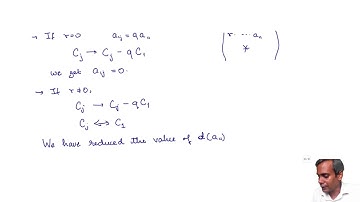 → If r=0 a_{1j} = q a_{11}
C_j → C_j - q C_1
we get a_{1j} = 0.
→ If r ≠ 0,
C_j → C_j - q C_1
C_j ↔ C_1
We have reduced the value of d(a_{11})
r ... a_n
*